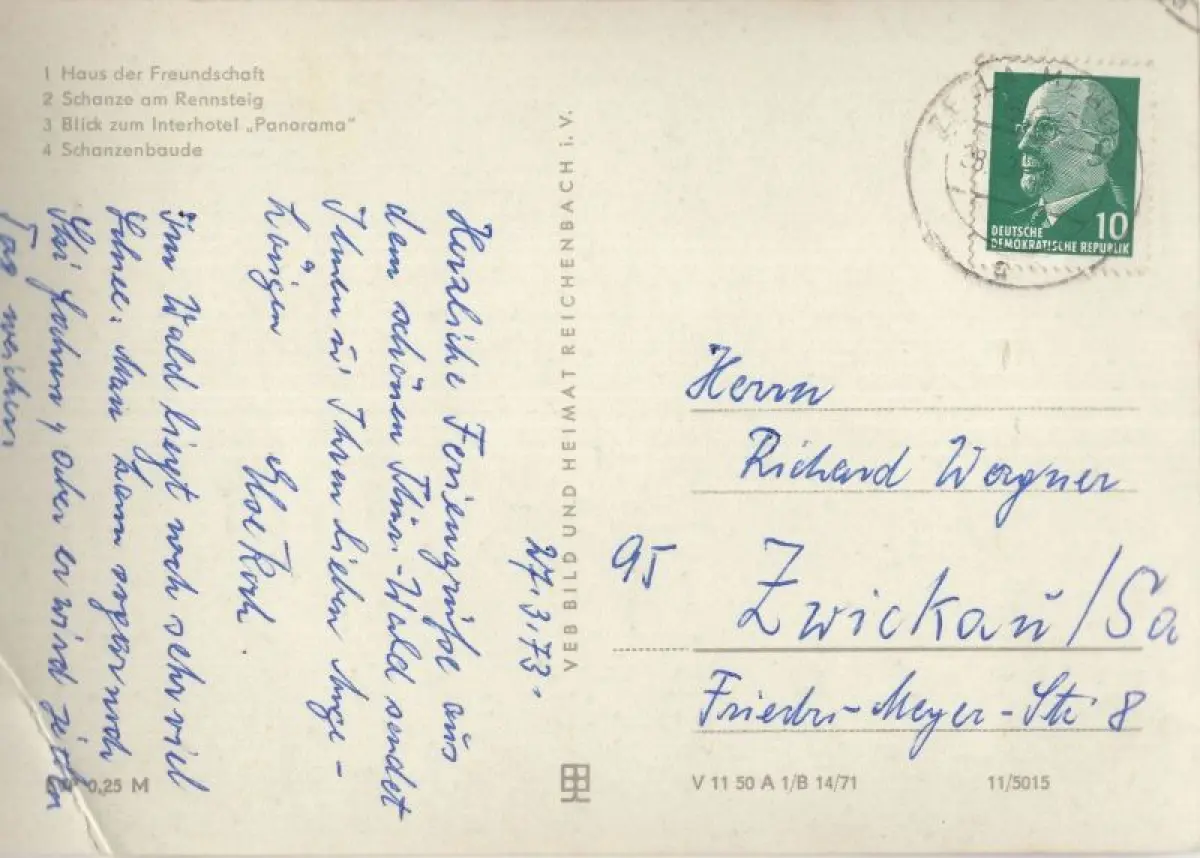 1 Haus der Freundschaft
2 Schanze am Rennsteig
3 Blick zum Interhotel „Panorama"
4 Schanzenbaude
27.3.73.
Herzliche Feriengrüße aus
dem schönen Thür.-Wald sendet
Ihnen u. Ihren lieben Ange-
hörigen
Koch
Im Wald liegt noch sehr viel
Schnee. Man kann sogar noch
Ski fahren, aber er wird jeden
Tag weicher.
VEB BILD UND HEIMAT REICHENBACH i. V.
10
DEUTSCHE
DEMOKRATISCHE REPUBLIK
Herrn
Richard Wagner
95 Zwickau/Sa
Friedr.-Meyer-Str. 8
0,25 M
V 11 50 A 1/B 14/71
11/5015